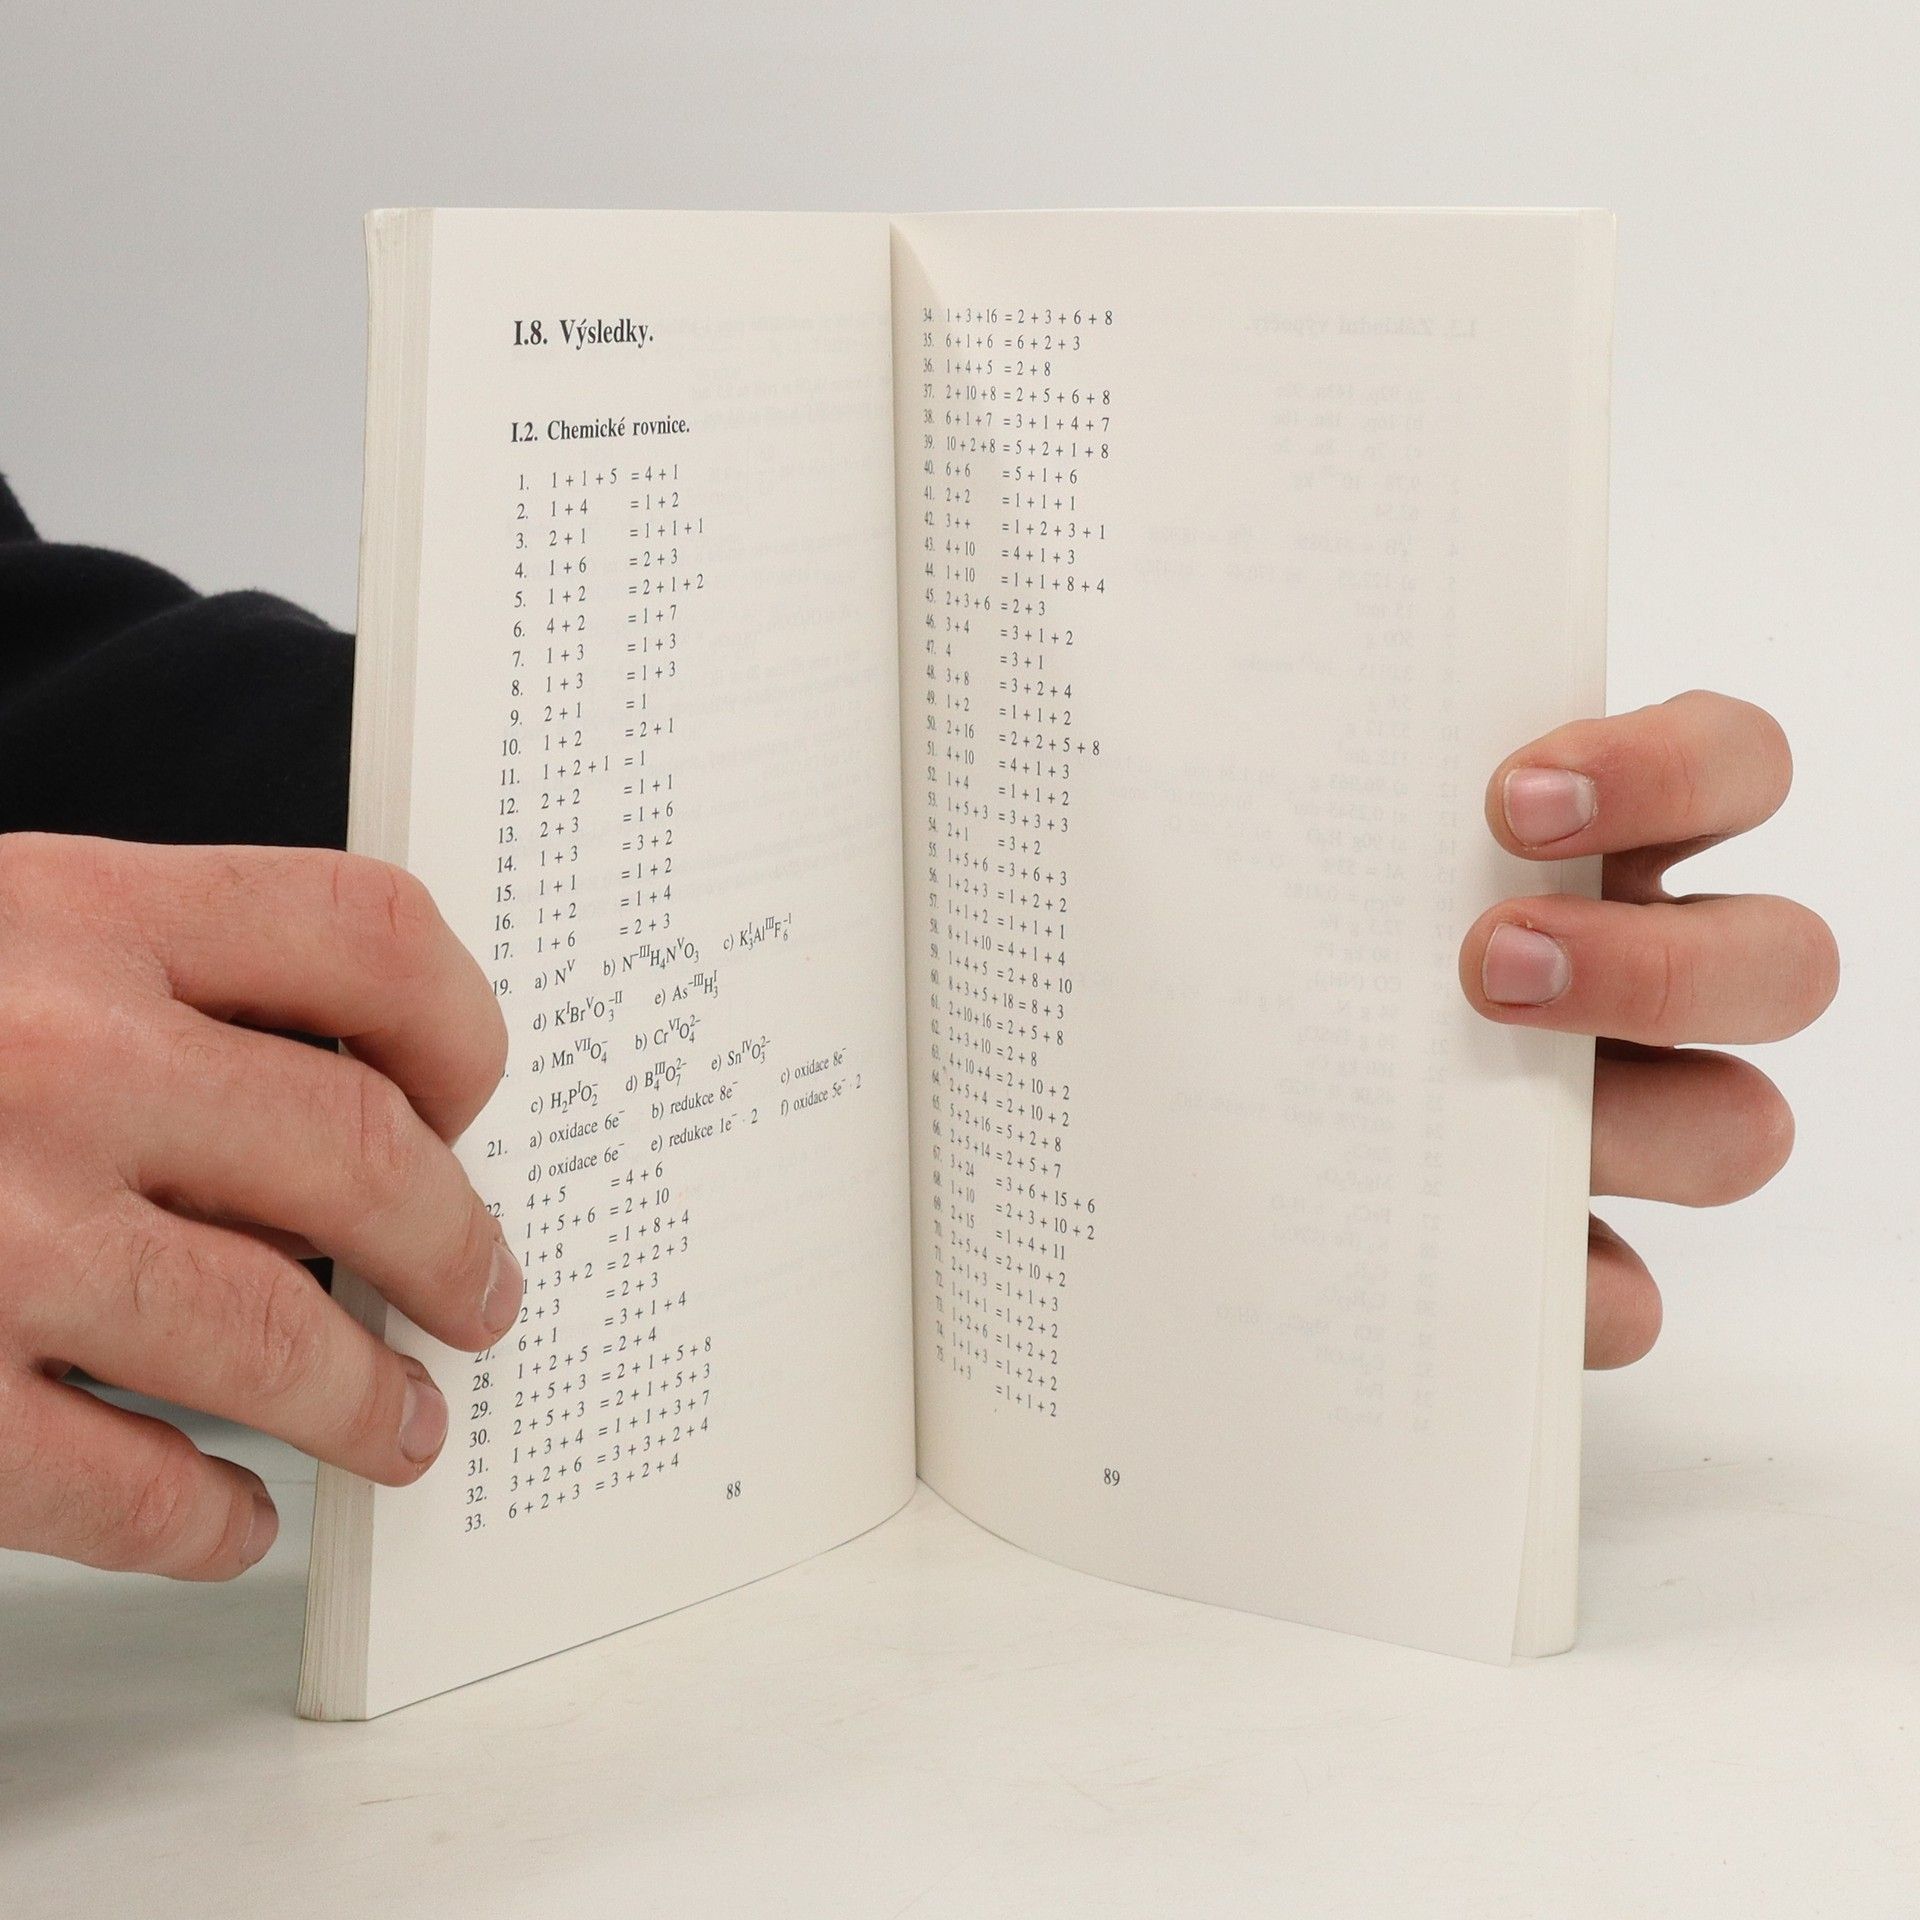 I.8. Výsledky.
I.2. Chemické rovnice.
1. 1 + 1 + 5 = 4 + 1
2. 1 + 4 = 1 + 2
3. 2 + 1 = 1 + 1 + 1
4. 1 + 6 = 2 + 3
5. 1 + 2 = 2 + 1 + 2
6. 4 + 2 = 1 + 7
7. 1 + 3 = 1 + 3
8. 1 + 3 = 1 + 3
9. 2 + 1 = 1
10. 1 + 2 = 2 + 1
11. 1 + 2 + 1 = 1
12. 2 + 2 = 1 + 1
13. 2 + 3 = 1 + 6
14. 1 + 3 = 3 + 2
15. 1 + 1 = 1 + 2
16. 1 + 2 = 1 + 4
17. 1 + 6 = 2 + 3
19. a) N^V b) N^-III H_4 N^V O_3 c) K^I_3 Al^III F^-I_6
d) K^I Br^V O^-II_3 e) As^-III H^I_3
a) Mn^VII O^-_4 b) Cr^VI O^2-_4
c) H_2 P^I O^-_2 d) B^III_4 O^2-_7 e) Sn^IV O^2-_3
21. a) oxidace 6e^- b) redukce 8e^- c) oxidace 8e^-
d) oxidace 6e^- e) redukce 1e^- · 2 f) oxidace 5e^- · 2
22. 4 + 5 = 4 + 6
1 + 5 + 6 = 2 + 10
1 + 8 = 1 + 8 + 4
1 + 3 + 2 = 2 + 2 + 3
2 + 3 = 2 + 3
27. 6 + 1 = 3 + 1 + 4
28. 1 + 2 + 5 = 2 + 4
29. 2 + 5 + 3 = 2 + 1 + 5 + 8
30. 2 + 5 + 3 = 2 + 1 + 5 + 3
31. 1 + 3 + 4 = 1 + 1 + 3 + 7
32. 3 + 2 + 6 = 3 + 3 + 2 + 4
33. 6 + 2 + 3 = 3 + 2 + 4
88
34. 1 + 3 + 16 = 2 + 3 + 6 + 8
35. 6 + 1 + 6 = 6 + 2 + 3
36. 1 + 4 + 5 = 2 + 8
37. 2 + 10 + 8 = 2 + 5 + 6 + 8
38. 6 + 1 + 7 = 3 + 1 + 4 + 7
39. 10 + 2 + 8 = 5 + 2 + 1 + 8
40. 6 + 6 = 5 + 1 + 6
41. 2 + 2 = 1 + 1 + 1
42. 3 + + = 1 + 2 + 3 + 1
43. 4 + 10 = 4 + 1 + 3
44. 1 + 10 = 1 + 1 + 8 + 4
45. 2 + 3 + 6 = 2 + 3
46. 3 + 4 = 3 + 1 + 2
47. 4 = 3 + 1
48. 3 + 8 = 3 + 2 + 4
49. 1 + 2 = 1 + 1 + 2
50. 2 + 16 = 2 + 2 + 5 + 8
51. 4 + 10 = 4 + 1 + 3
52. 1 + 4 = 1 + 1 + 2
53. 1 + 5 + 3 = 3 + 3 + 3
54. 2 + 1 = 3 + 2
55. 1 + 5 + 6 = 3 + 6 + 3
56. 1 + 2 + 3 = 1 + 2 + 2
57. 1 + 1 + 2 = 1 + 1 + 1
58. 8 + 1 + 10 = 4 + 1 + 4
59. 1 + 4 + 5 = 2 + 8 + 10
60. 8 + 3 + 5 + 18 = 8 + 3
61. 2 + 10 + 16 = 2 + 5 + 8
62. 2 + 3 + 10 = 2 + 8
63. 4 + 10 + 4 = 2 + 10 + 2
64. 2 + 5 + 4 = 2 + 10 + 2
65. 5 + 2 + 16 = 5 + 2 + 8
66. 2 + 5 + 14 = 2 + 5 + 7
67. 3 + 24 = 3 + 6 + 15 + 6
68. 1 + 10 = 2 + 3 + 10 + 2
69. 2 + 15 = 1 + 4 + 11
70. 2 + 5 + 4 = 2 + 10 + 2
71. 2 + 1 + 3 = 1 + 1 + 3
72. 1 + 1 + 1 = 1 + 2 + 2
73. 1 + 2 + 6 = 1 + 2 + 2
74. 1 + 1 + 3 = 1 + 2 + 2
75. 1 + 3 = 1 + 1 + 2
89